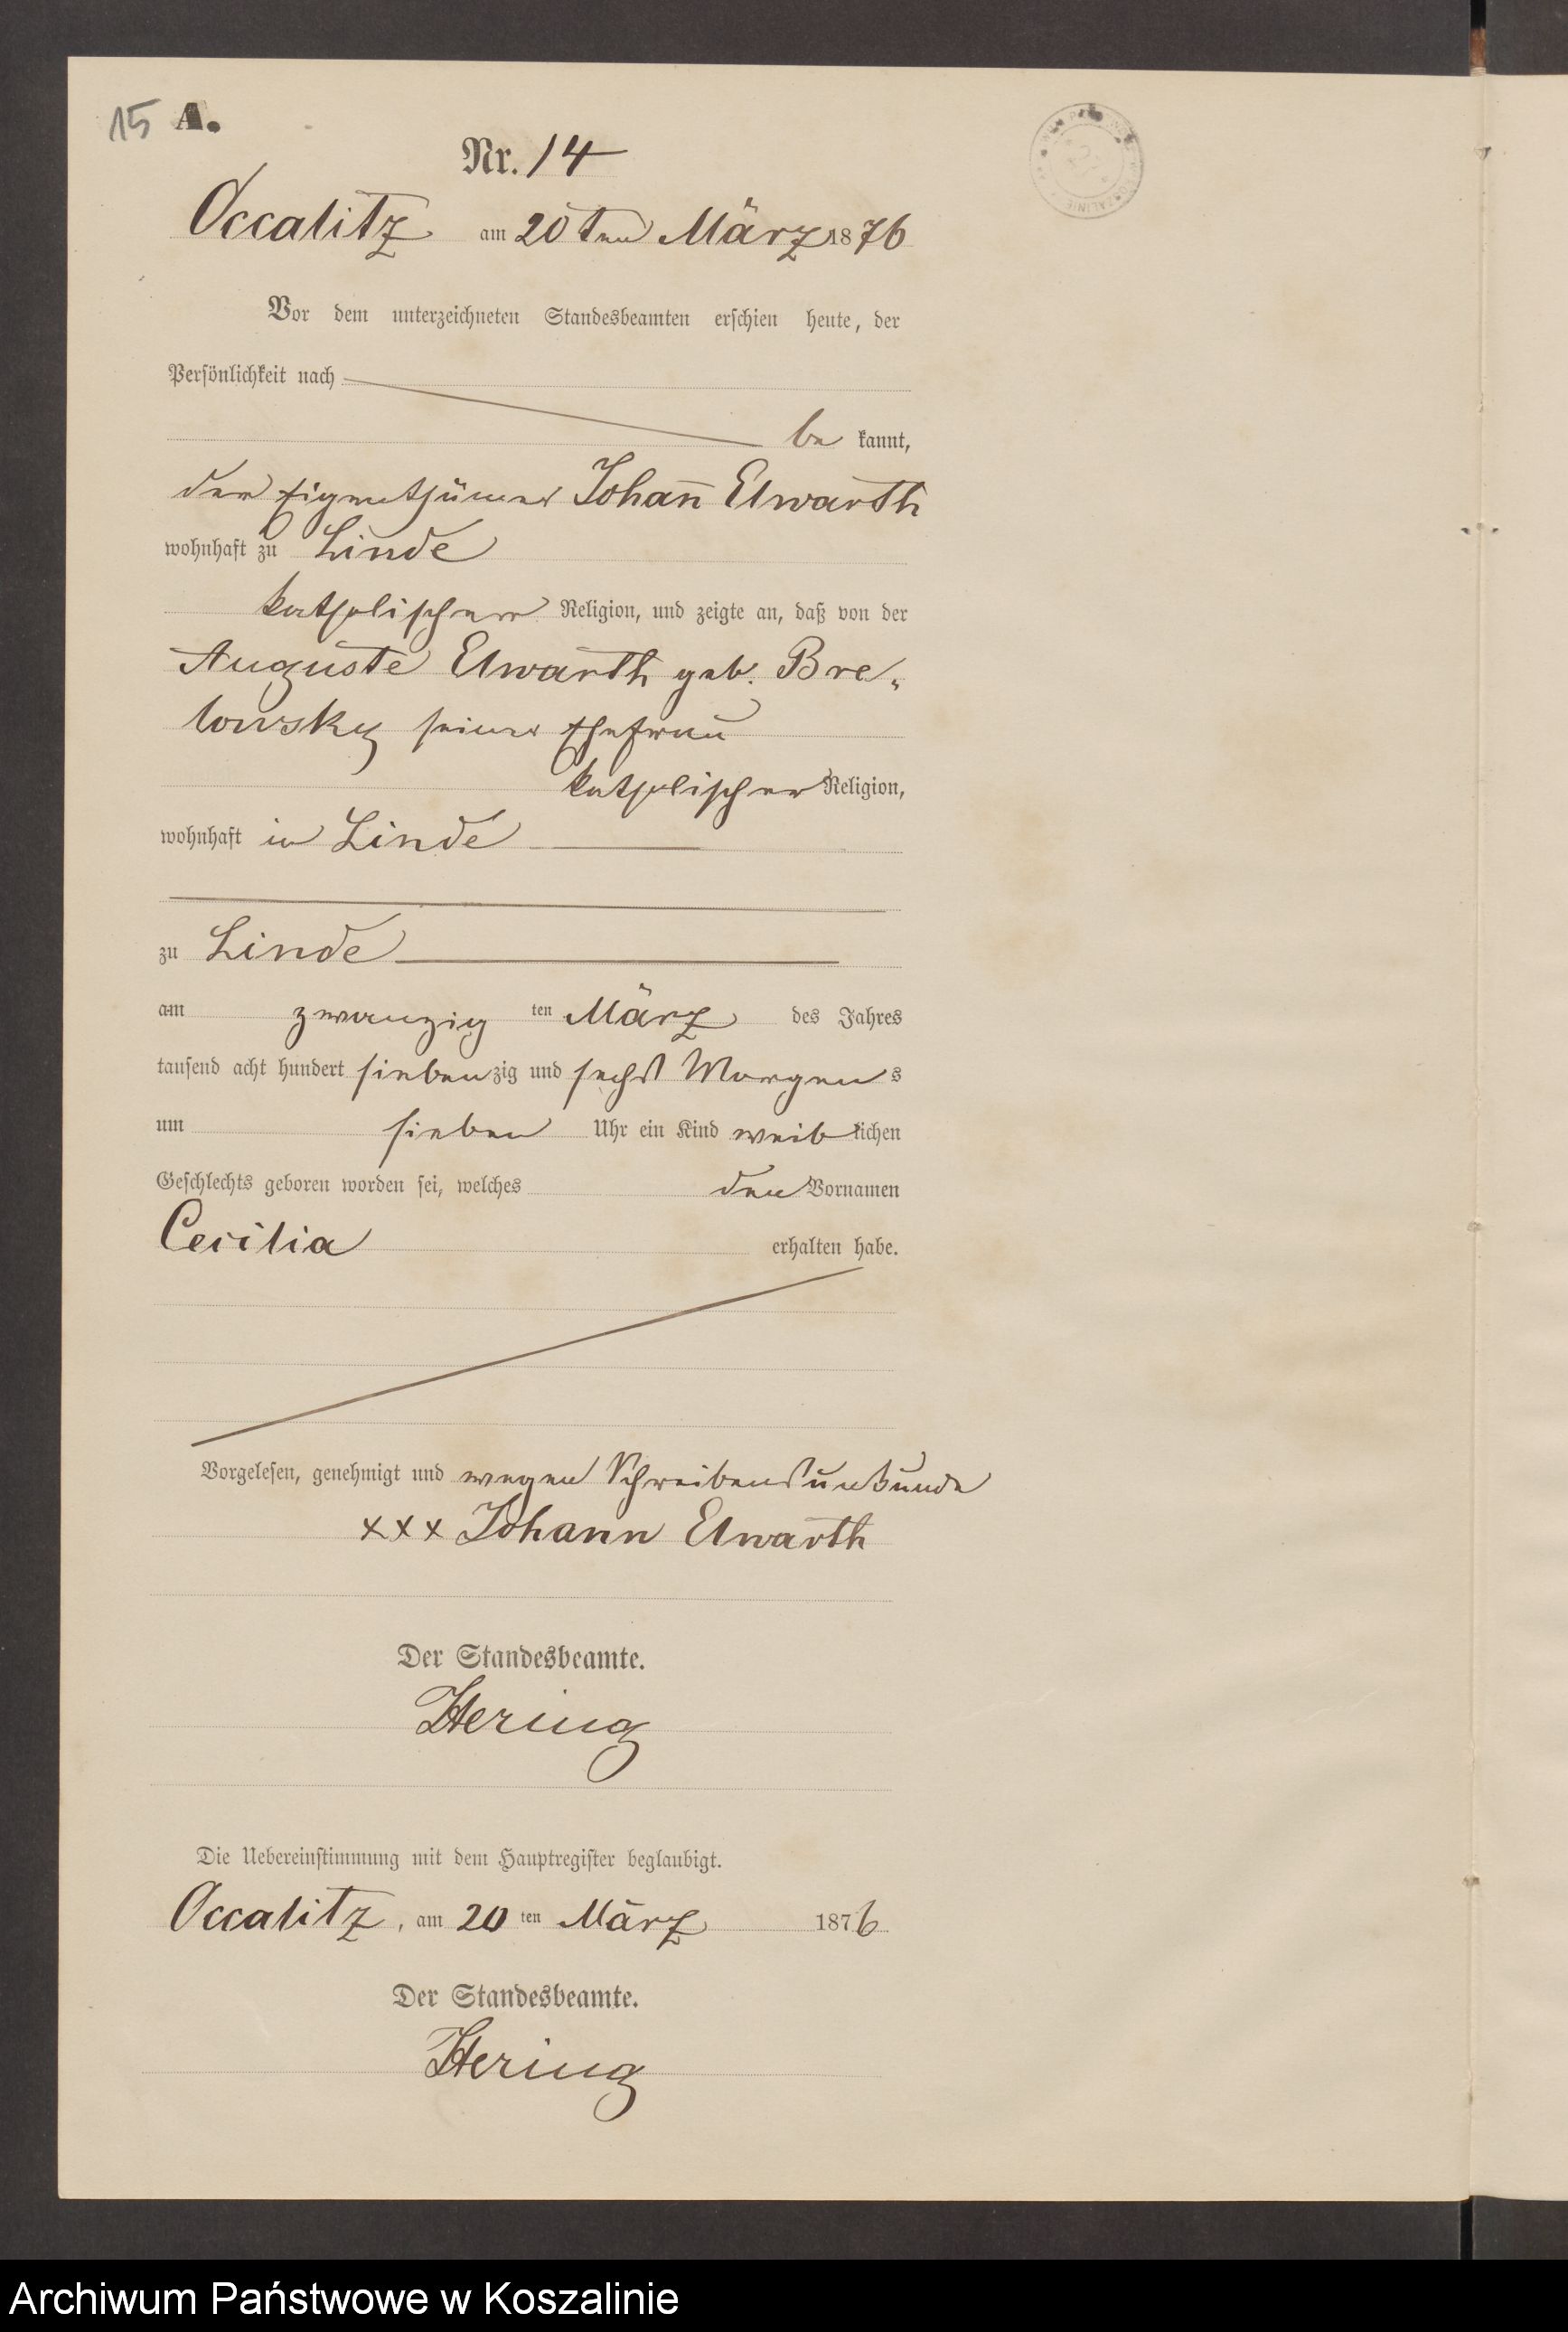 15 A.
Nr. 14
Occalitz am 20ten März 1876
Vor dem unterzeichneten Standesbeamten erschien heute, der
Persönlichkeit nach
be kannt,
der Eigenthümer Johan̅ Elwarth
wohnhaft zu Linde
katholischer Religion, und zeigte an, daß von der
Auguste Elwarth geb. Bre-
lowsky seiner Ehefrau
katholischer Religion,
wohnhaft in Linde
zu Linde
am zwanzig ten März des Jahres
tausend acht hundert siebenzig und sechs Morgens
um sieben Uhr ein Kind weiblichen
Geschlechts geboren worden sei, welches den Vornamen
Cecilia erhalten habe.
Vorgelesen, genehmigt und wegen Schreibensunkunde
xxx Johann Elwarth
Der Standesbeamte.
Hering
Die Uebereinstimmung mit dem Hauptregister beglaubigt.
Occalitz, am 20 ten März 1876
Der Standesbeamte.
Hering
Archiwum Państwowe w Koszalinie